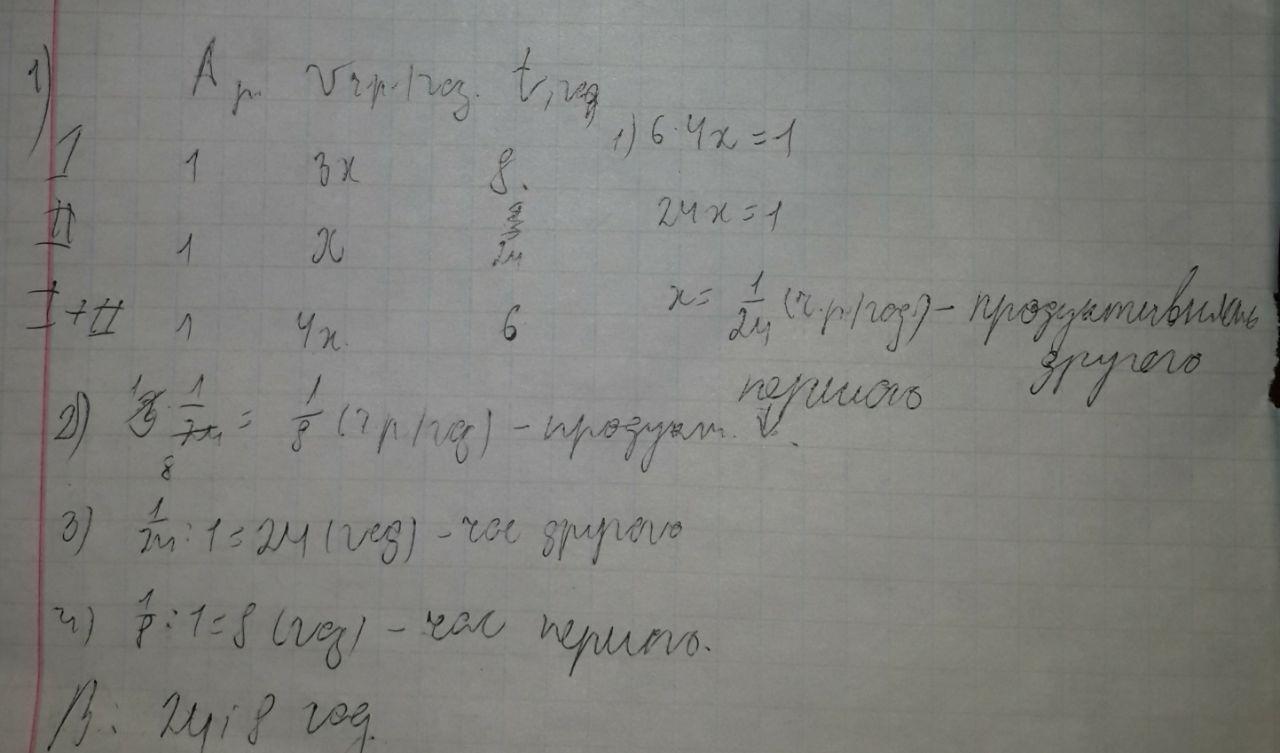 1) A р. V ч.р./год. t, год
I 1 3x 8.
II 1 x 24
I+II 1 4x 6
1) 6·4x=1
24x=1
x= 1/24 (ч.р./год.) – продуктивність
другого
2) 3 · 1/24 = 1/8 (ч р/год) – продукт. першого
3) 1/24 : 1 = 24 (год) – час другого
4) 1/8 : 1 = 8 (год) – час першого.
В: 24 і 8 год.